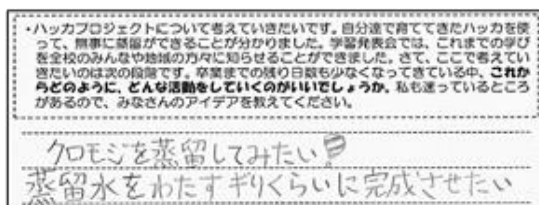 ・ハッカプロジェクトについて考えていきたいです。自分達で育ててきたハッカを使
って、無事に蒸留ができることが分かりました。学習発表会では、これまでの学び
を全校のみんなや地域の方々に知らせることができました。さて、ここで考えてい
きたいのは次の段階です。卒業までの残り日数も少なくなってきている中、これか
らどのように、どんな活動をしていくのがいいでしょうか。私も迷っているところ
があるので、みなさんのアイデアを教えてください。
クロモジを蒸留してみたい
蒸留水をわたすギリくらいに完成させたい